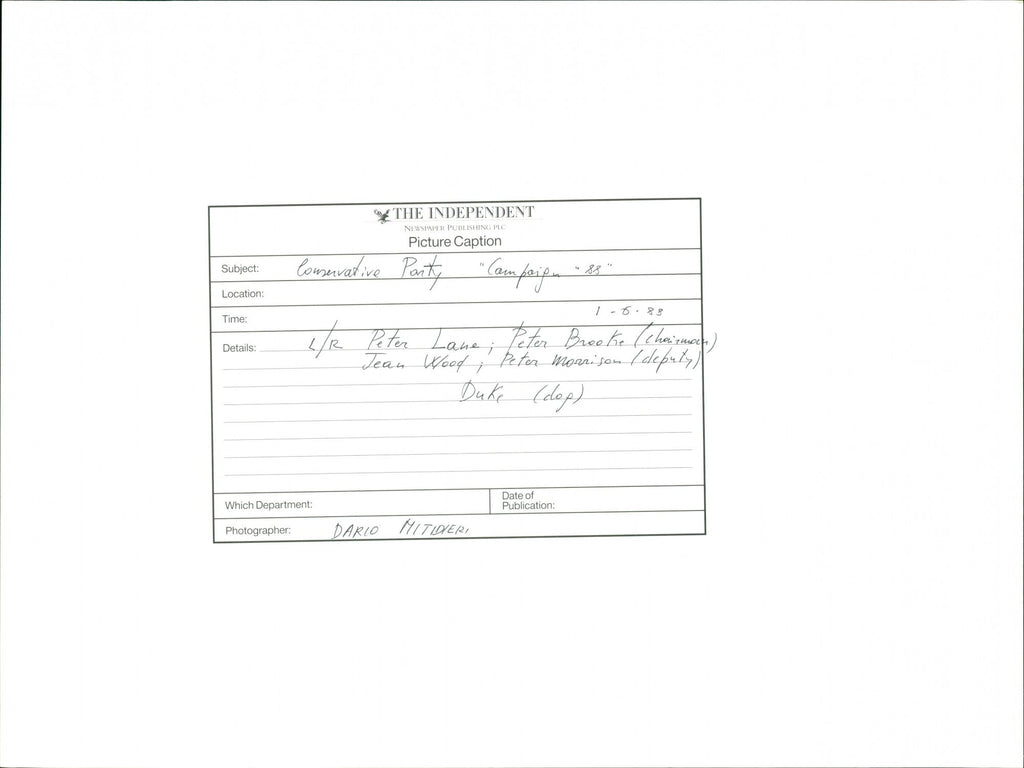 THE INDEPENDENT
NEWSPAPER PUBLISHING PLC
Picture Caption
Subject: Conservative Party "Campaign "88"
Location:
Time: 1-6-88
Details: L/R Peter Lane; Peter Brooke (chairman)
Jean Wood; Peter Morrison (deputy)
Duke (dog)
Which Department:
Date of
Publication:
Photographer: DARIO MITIDIERI